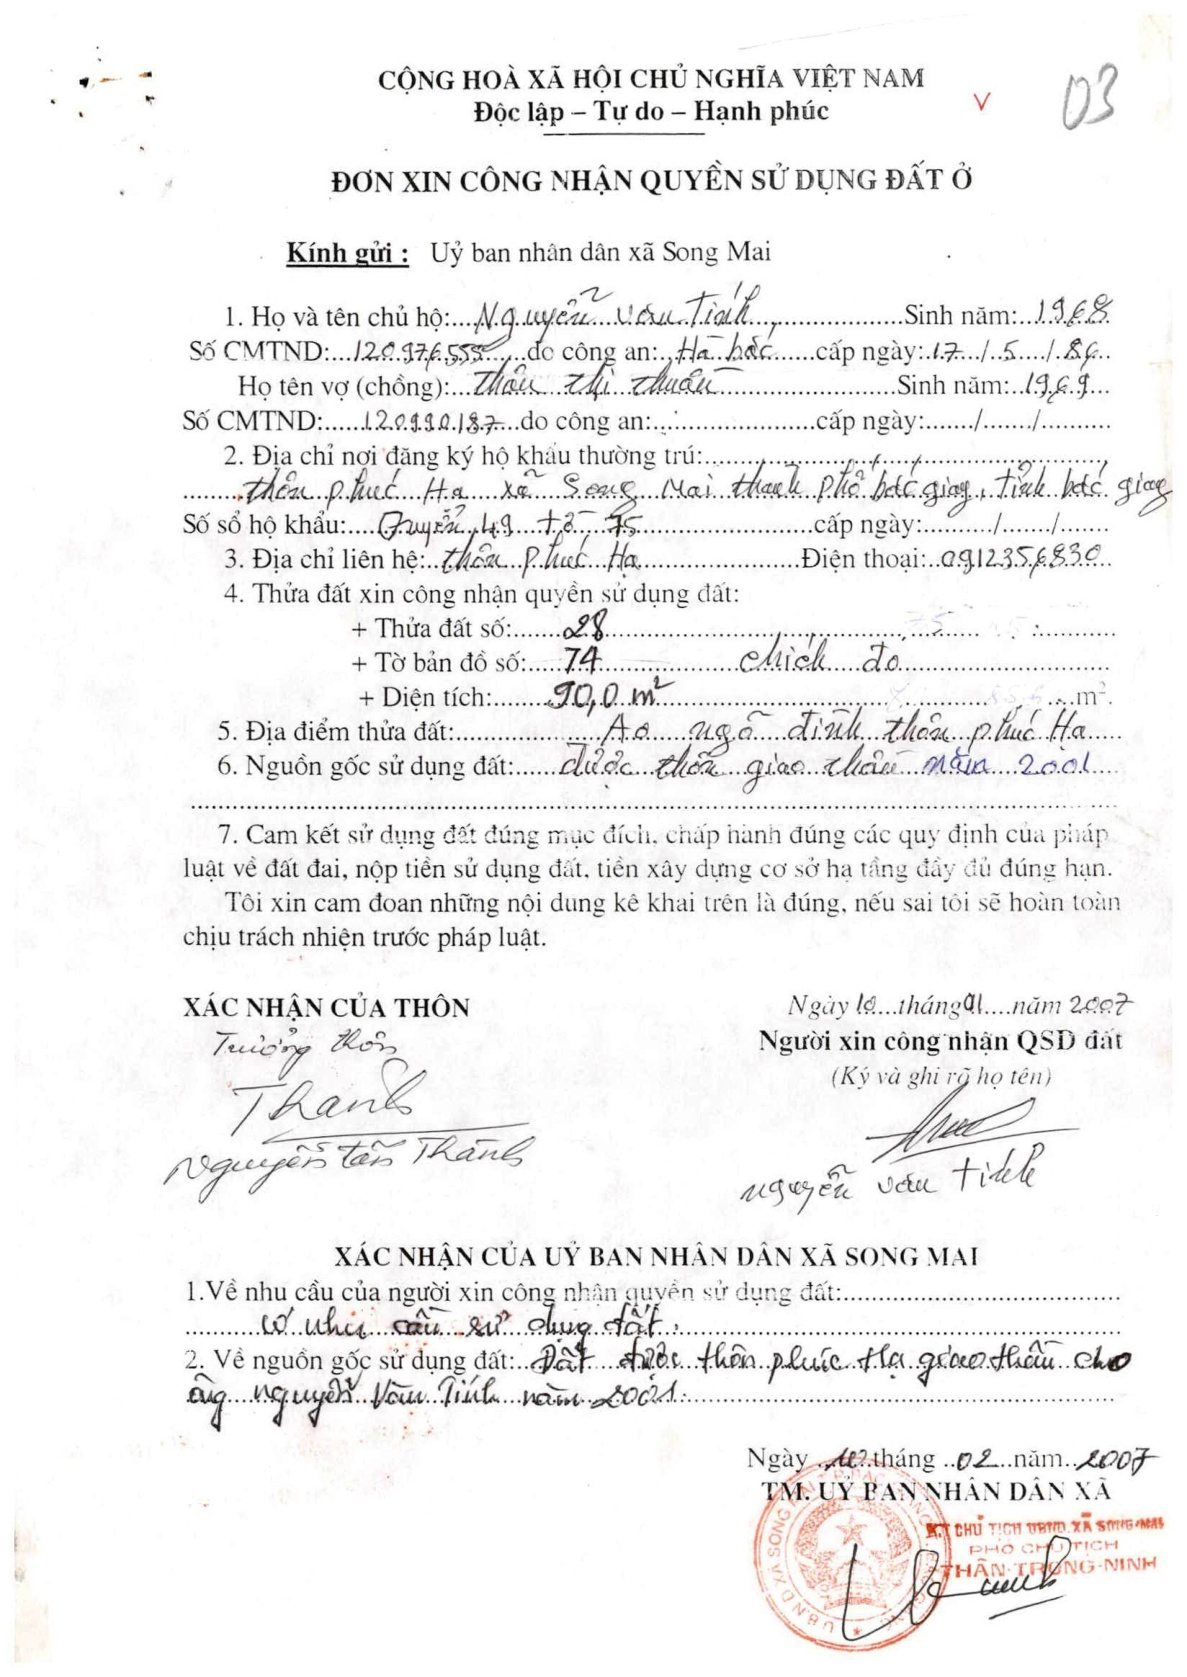 03
CỘNG HOÀ XÃ HỘI CHỦ NGHĨA VIỆT NAM
Độc lập – Tự do – Hạnh phúc
ĐƠN XIN CÔNG NHẬN QUYỀN SỬ DỤNG ĐẤT Ở
Kính gửi : Uỷ ban nhân dân xã Song Mai
1. Họ và tên chủ hộ:...Nguyễn văn Tính...Sinh năm:...1968
Số CMTND:...120976555...do công an:..Hà bắc...cấp ngày:.17../.5.../.86
Họ tên vợ (chồng):...Thân thị thuần...Sinh năm:..1969...
Số CMTND:......120990187...do công an:.......cấp ngày:......./......./..........
2. Địa chỉ nơi đăng ký hộ khẩu thường trú:..........
thôn phúc Hạ xã Song Mai thành phố bắc giang, tỉnh bắc giang
Số sổ hộ khẩu:....Quyển 49 tờ 75..........cấp ngày:........./......./.......
3. Địa chỉ liên hệ:..thôn phúc Hạ..........Điện thoại:..0912356830..
4. Thửa đất xin công nhận quyền sử dụng đất:
+ Thửa đất số:.......28..........
+ Tờ bản đồ số:.....74..........chích đo
+ Diện tích:.......90,0 m²..........m².
5. Địa điểm thửa đất:..........Ao ngõ đình thôn phúc Hạ.....
6. Nguồn gốc sử dụng đất:......được thôn giao thầu năm 2001....
7. Cam kết sử dụng đất đúng mục đích, chấp hành đúng các quy định của pháp
luật về đất đai, nộp tiền sử dụng đất, tiền xây dựng cơ sở hạ tầng đầy đủ đúng hạn.
Tôi xin cam đoan những nội dung kê khai trên là đúng, nếu sai tôi sẽ hoàn toàn
chịu trách nhiện trước pháp luật.
XÁC NHẬN CỦA THÔN
Ngày 10...tháng 01....năm 2007
Trưởng thôn
Người xin công nhận QSD đất
(Ký và ghi rõ họ tên)
Thanh
Nguyễn tấn Thành
nguyễn văn Tính
XÁC NHẬN CỦA UỶ BAN NHÂN DÂN XÃ SONG MAI
1.Về nhu cầu của người xin công nhận quyền sử dụng đất:..........
có nhu cầu sử dụng đất.
2. Về nguồn gốc sử dụng đất: Đất được thôn phúc Hạ giao thầu cho
ông nguyễn Văn Tính năm 2001.
Ngày ..10..tháng ..02...năm...2007
TM. UỶ BAN NHÂN DÂN XÃ
KT CHỦ TỊCH UBND XÃ SONG-MAI
PHÓ CHỦ TỊCH
THÂN-TRỌNG-NINH